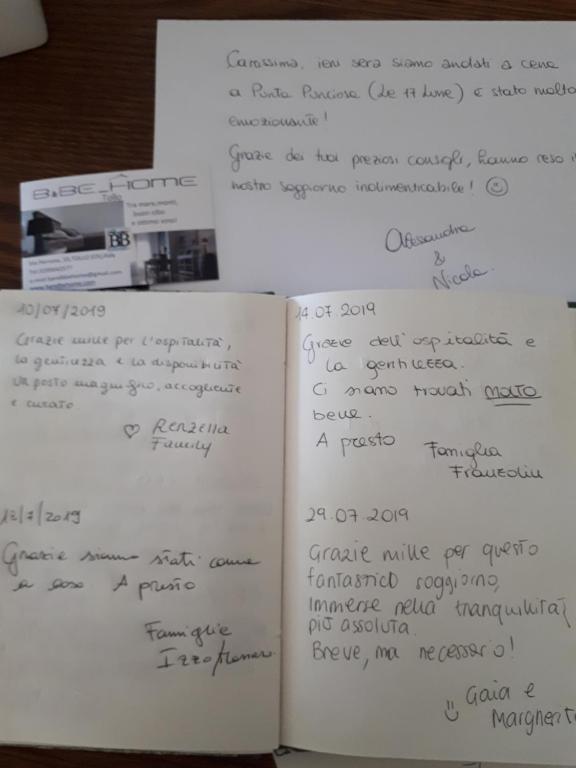 Carissima, ieri sera siamo andati a cena
a Punta Punciosa (Le 17 Lune) è stato molto
emozionante!
Grazie dei tuoi preziosi consigli, hanno reso il
nostro soggiorno indimenticabile! ☺
Alessandra
&
Nicola.
B&BE_HOME
Tollo
Tra mare, monti,
buon cibo
e ottimo vino!
BB
10/07/2019
Grazie mille per l'ospitalità,
la gentilezza e la disponibilità
Un posto magnifico, accogliente
e curato
♡ Renzella
Family
12/7/2019
Grazie siamo stati come
a casa A presto
Famiglie
14.07.2019
Grazie dell'ospitalità e
la gentilezza.
Ci siamo trovati MOLTO
bene.
A presto
Famiglia
Franzolin
29.07.2019
Grazie mille per questo
fantastico soggiorno,
Immerse nella tranquillità
più assoluta.
Breve, ma necessario!
Gaia e
Margherita